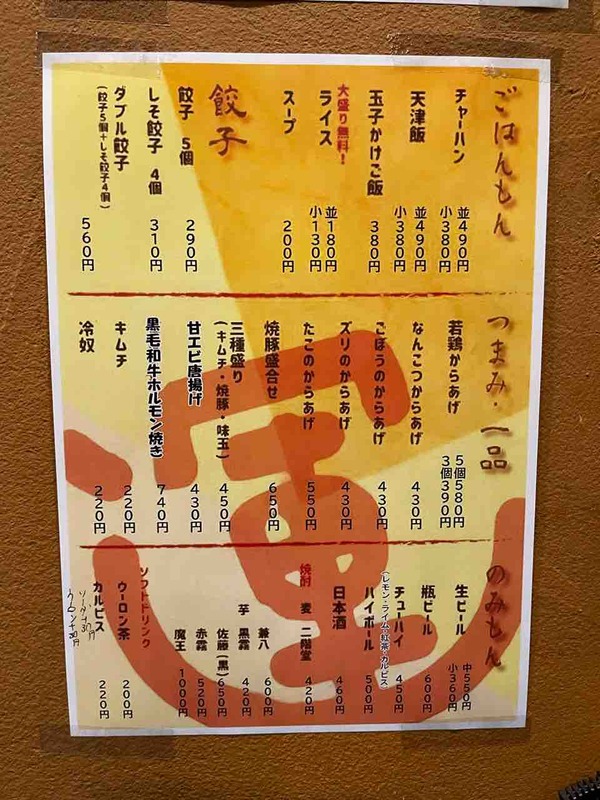 ごはんもん
チャーハン 並490円 小380円
天津飯 並490円 小380円
玉子かけご飯 380円
大盛り無料！
ライス 並180円 小130円
スープ 200円
餃子
餃子 5個 290円
しそ餃子 4個 310円
ダブル餃子 560円
(餃子5個+しそ餃子4個)
つまみ・一品
若鶏からあげ 5個580円 3個390円
なんこつからあげ 430円
ごぼうのからあげ 430円
ズリのからあげ 430円
たこのからあげ 550円
焼豚盛合せ 650円
三種盛り 450円
(キムチ・焼豚・味玉)
甘エビ唐揚げ 430円
黒毛和牛ホルモン焼き 740円
キムチ 220円
冷奴 220円
のみもん
生ビール 中550円 小360円
瓶ビール 600円
チューハイ 450円
(レモン・ライム・紅茶・カルピス)
ハイボール 500円
日本酒 460円
焼酎 麦 二階堂 420円
兼八 600円
芋 黒霧 420円
佐藤(黒) 650円
赤霧 520円
魔王 1000円
ソフトドリンク
ウーロン茶 200円
カルピス 220円